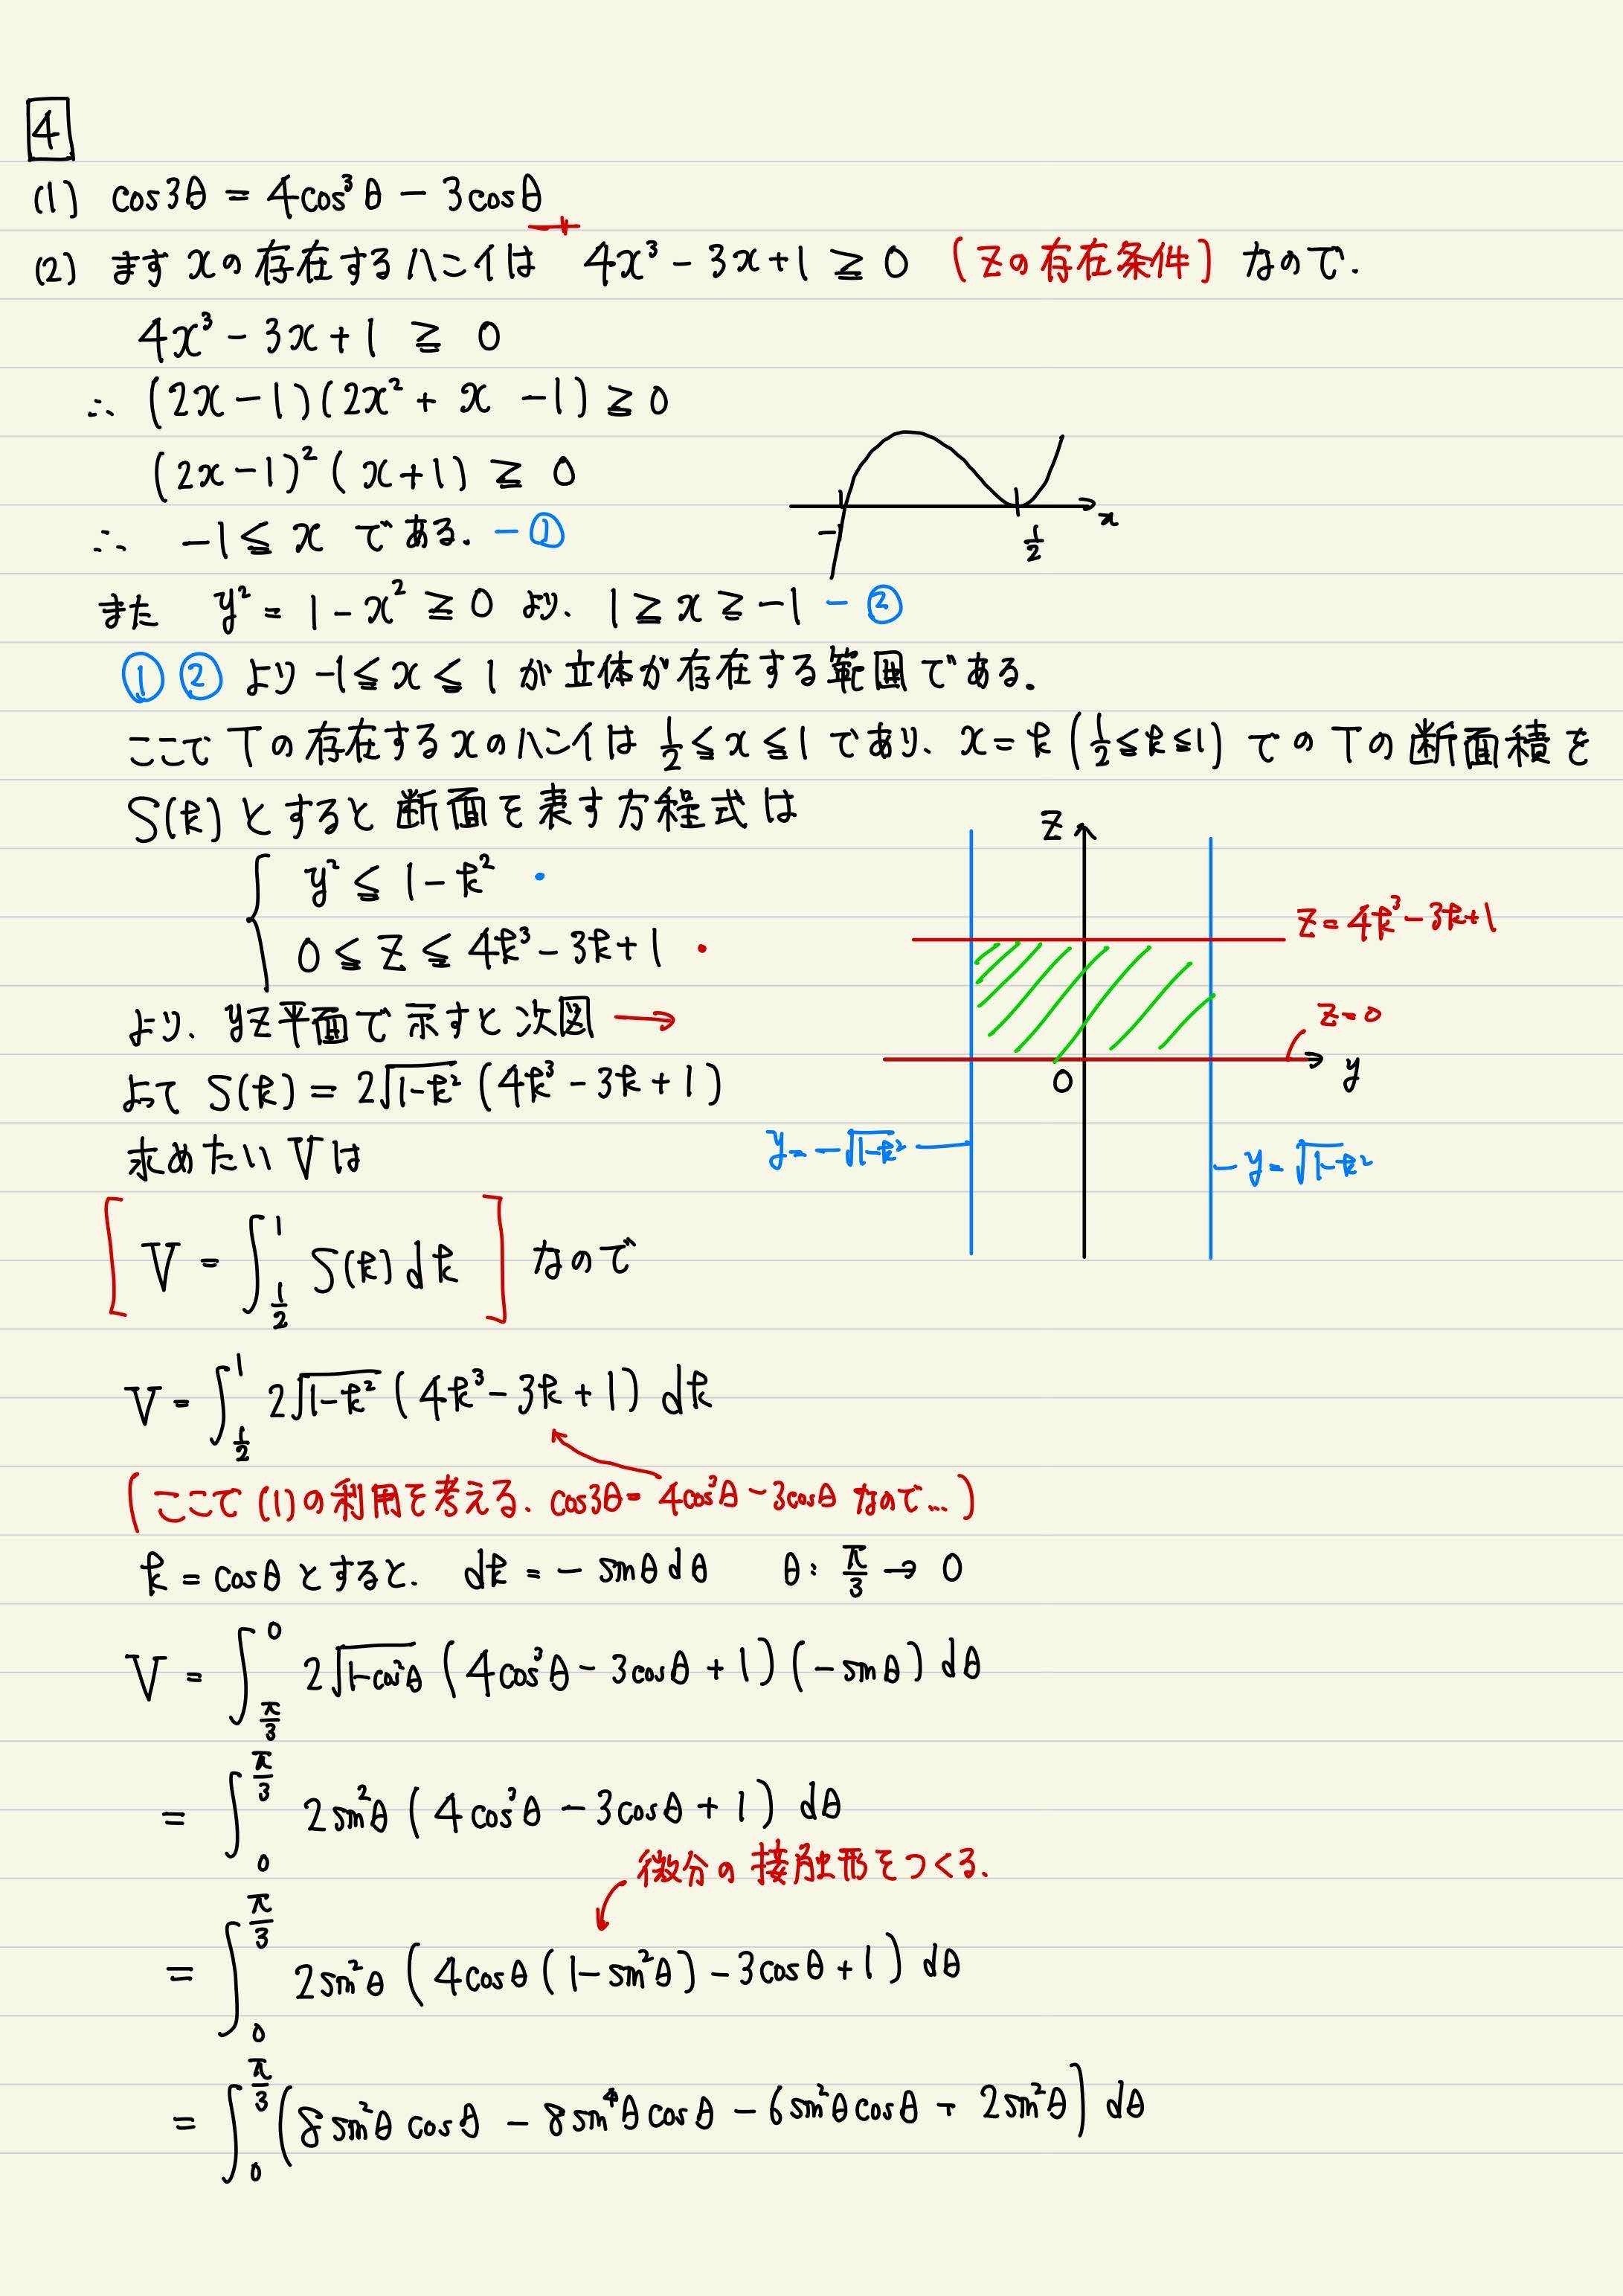 4
(1) cos3θ = 4cos³θ − 3cosθ
(2) まず xの存在するハンイは 4x³ − 3x + 1 ≧ 0 (zの存在条件) なので.
4x³ − 3x + 1 ≧ 0
∴ (2x − 1)(2x² + x − 1) ≧ 0
(2x − 1)²(x + 1) ≧ 0
∴ −1 ≦ x である. − ①
−1
1/2
x
また y² = 1 − x² ≧ 0 より. 1 ≧ x ≧ −1 − ②
① ② より −1 ≦ x ≦ 1 が立体が存在する範囲である.
ここで Tの存在するxのハンイは 1/2 ≦ x ≦ 1 であり、x = k (1/2 ≦ k ≦ 1) でのTの断面積を
S(k) とすると断面を表す方程式は
{ y² ≦ 1 − k²
0 ≦ z ≦ 4k³ − 3k + 1
より、yz平面で示すと次図 →
z
z = 4k³ − 3k + 1
z = 0
O
y
y = −√(1−k²)
y = √(1−k²)
よって S(k) = 2√(1−k²) (4k³ − 3k + 1)
求めたい Vは
[ V = ∫_{1/2}^{1} S(k) dk ] なので
V = ∫_{1/2}^{1} 2√(1−k²) (4k³ − 3k + 1) dk
(ここで (1)の利用を考える. cos3θ = 4cos³θ − 3cosθ なので…)
k = cosθ とすると. dk = − sinθ dθ θ: π/3 → 0
V = ∫_{π/3}^{0} 2√(1−cos²θ) (4cos³θ − 3cosθ + 1)(−sinθ) dθ
= ∫_{0}^{π/3} 2sin²θ (4cos³θ − 3cosθ + 1) dθ
微分の接触形をつくる.
= ∫_{0}^{π/3} 2sin²θ (4cosθ(1 − sin²θ) − 3cosθ + 1) dθ
= ∫_{0}^{π/3} (8sin²θ cosθ − 8sin⁴θ cosθ − 6sin²θ cosθ + 2sin²θ) dθ